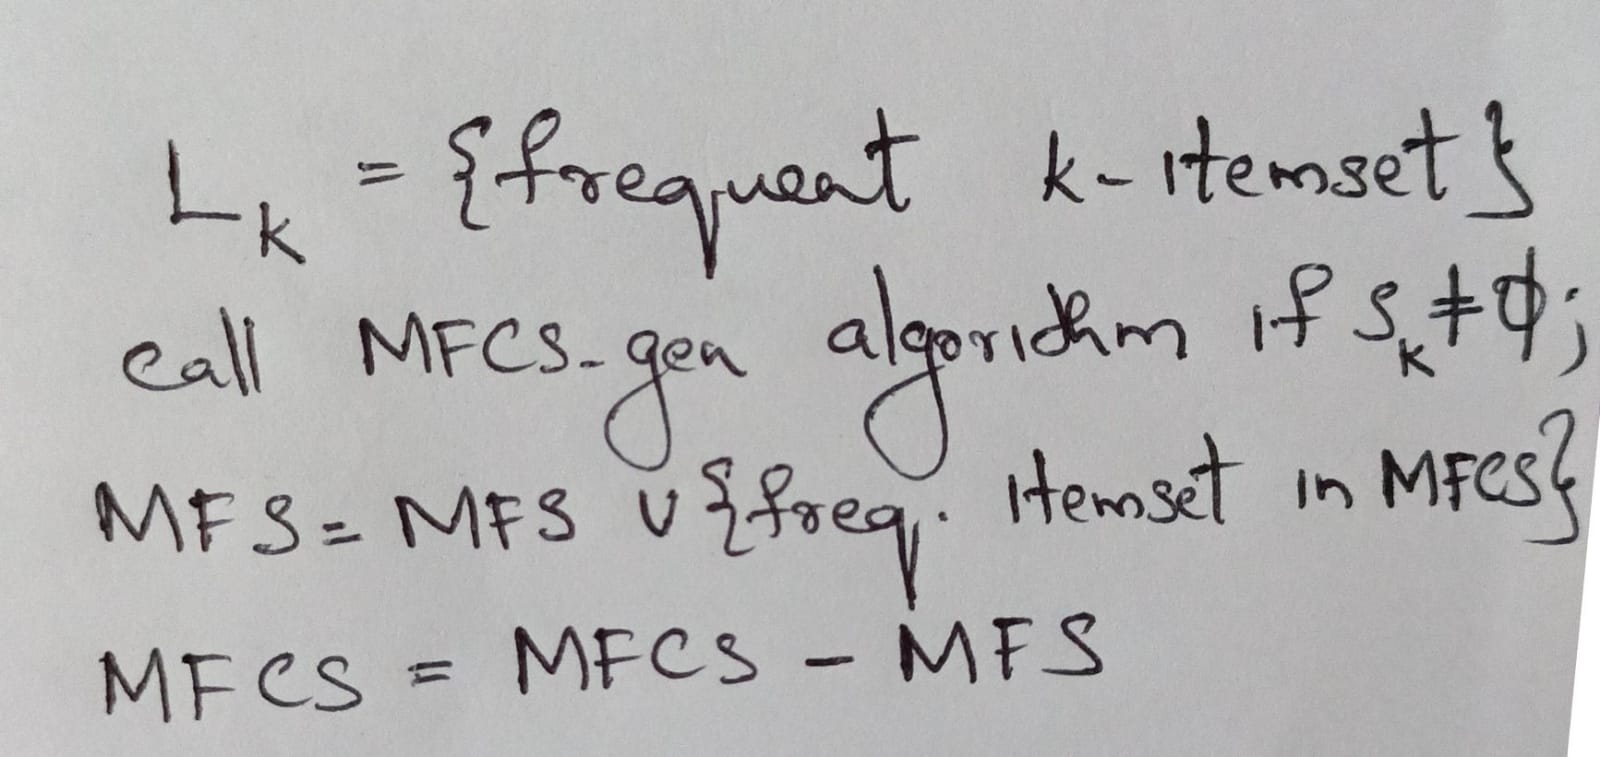 L_k = {frequent k-itemset}
call MFCS-gen algorithm if S_k ≠ ϕ;
MFS = MFS ∪ {freq. itemset in MFCS}
MFCS = MFCS - MFS